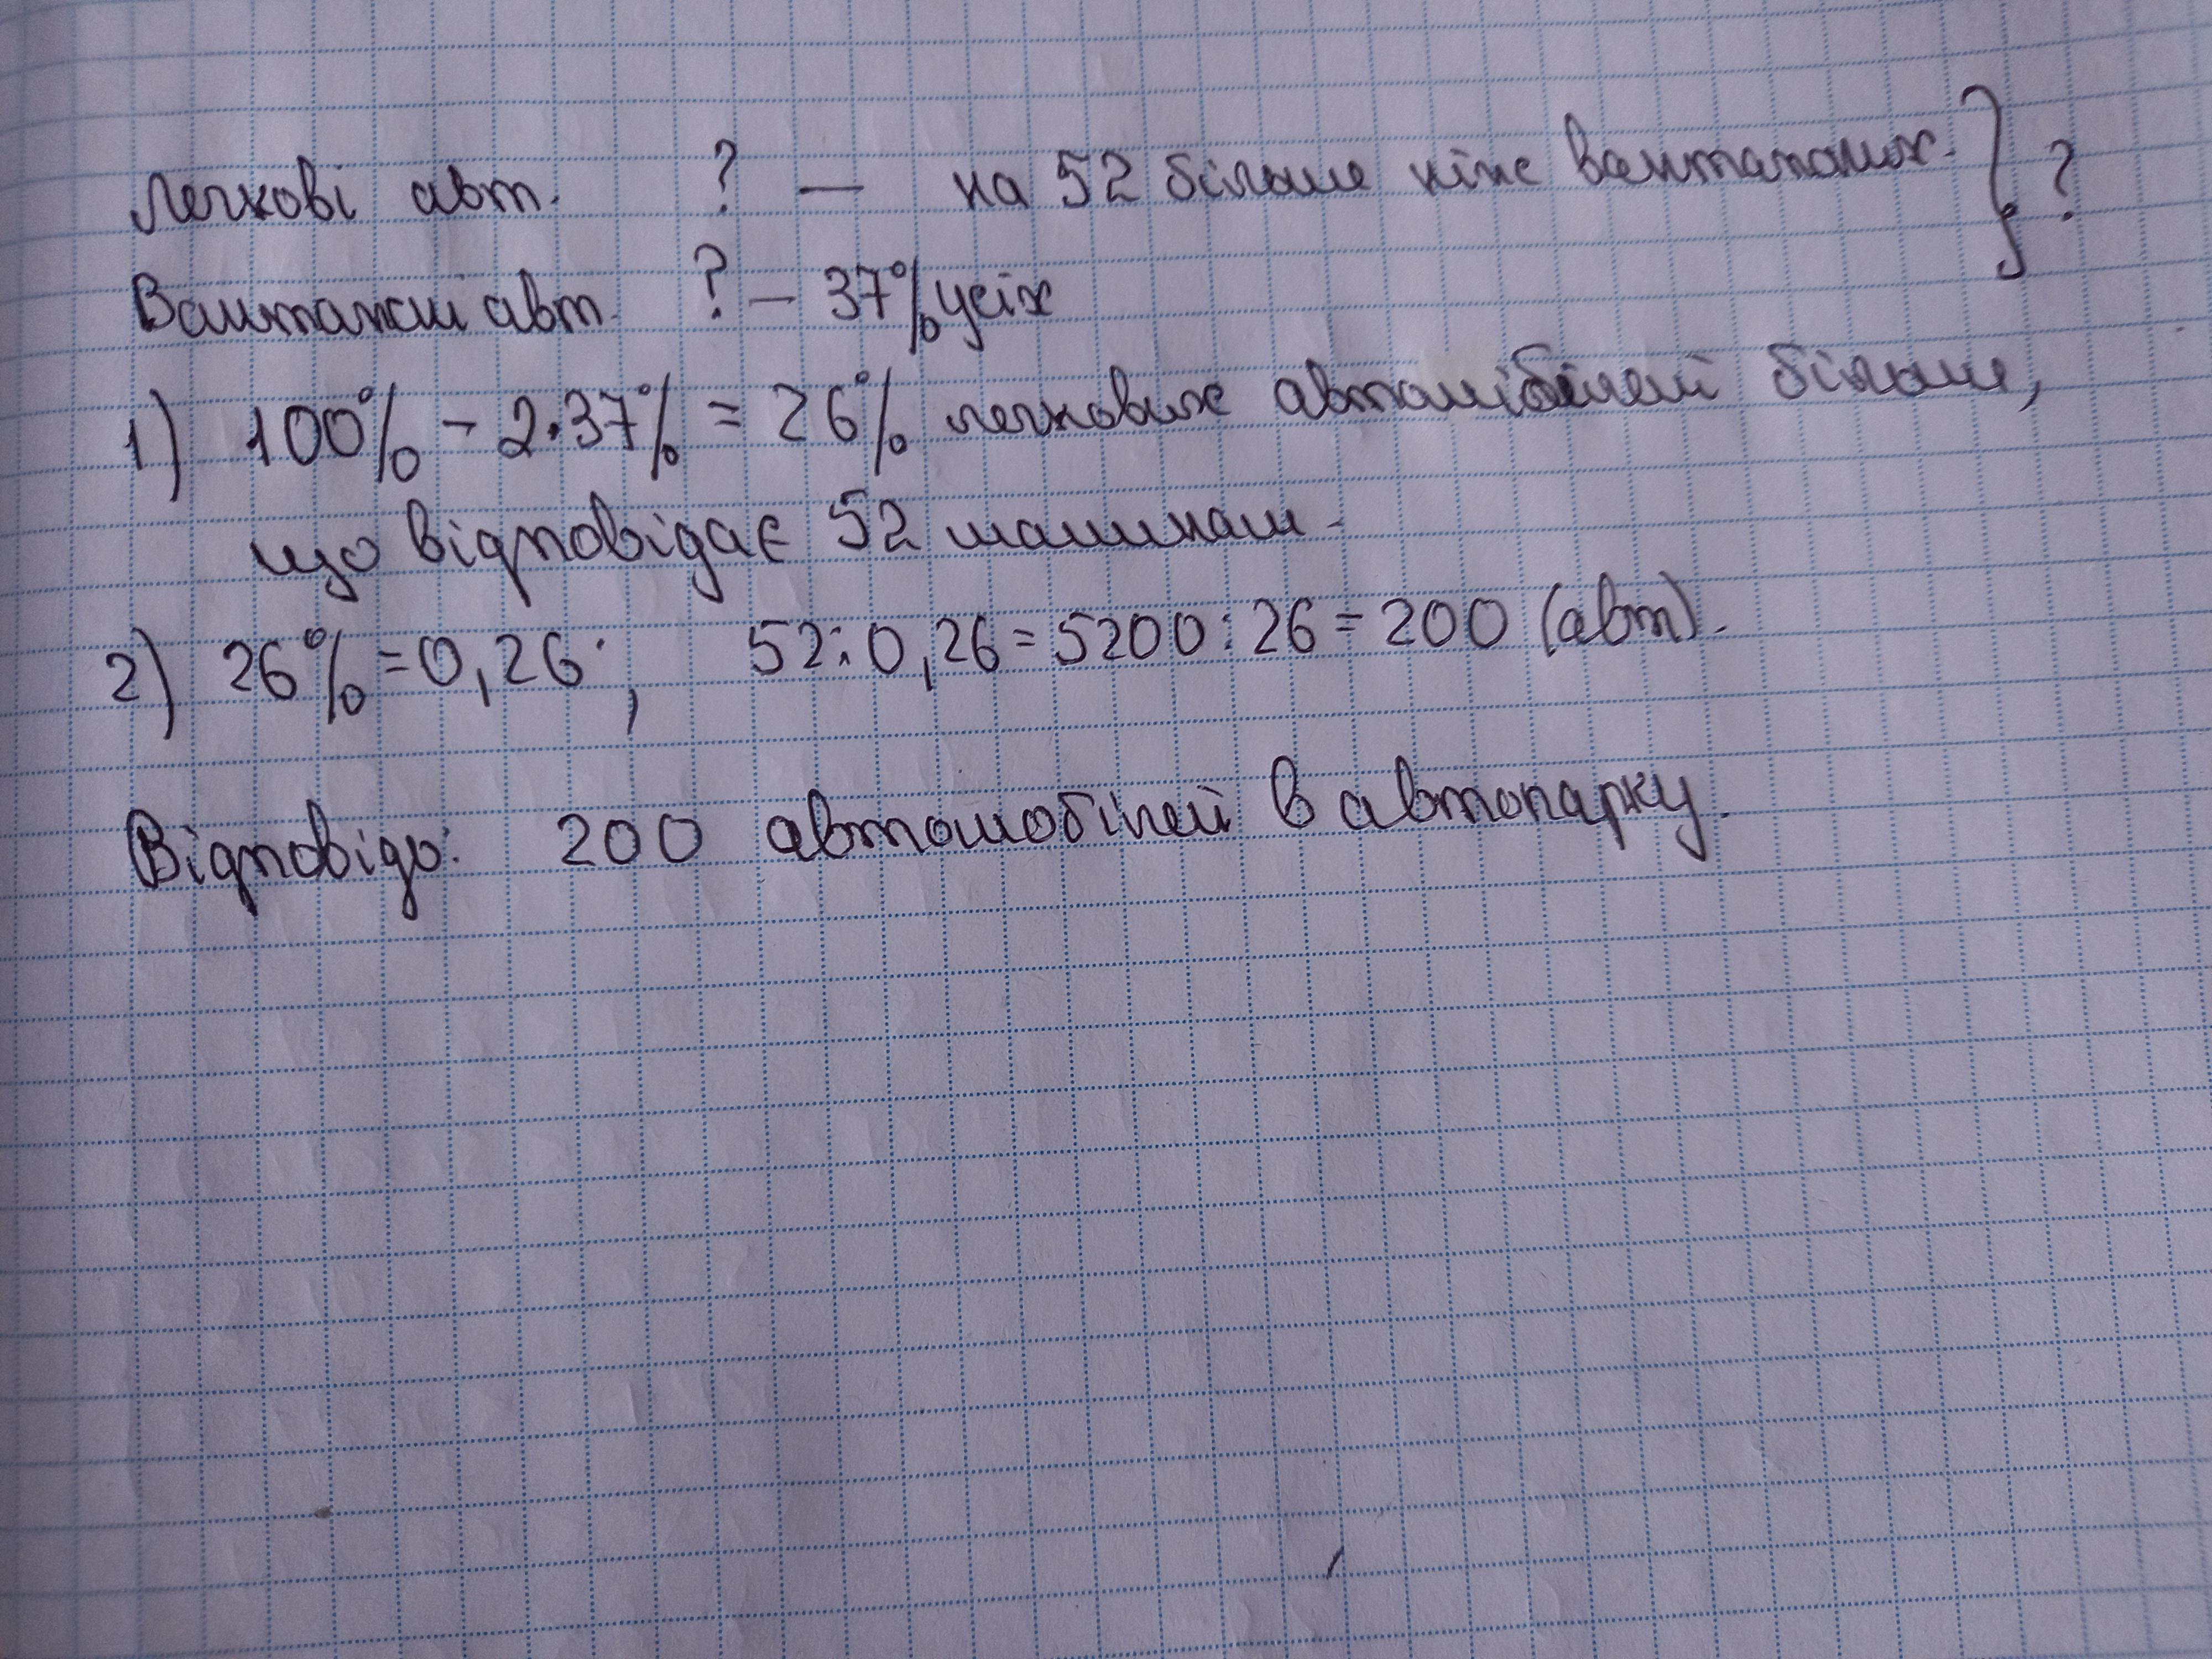 Легкові авт. ? — на 52 більше ніж вантажних. } ?
Вантажні авт. ? – 37% усіх
1) 100% – 2·37% = 26% легкових автомобілей більше,
що відповідає 52 машинам.
2) 26% = 0,26 ; 52:0,26 = 5200:26 = 200 (авт).
Відповідь: 200 автомобілей в автопарку.